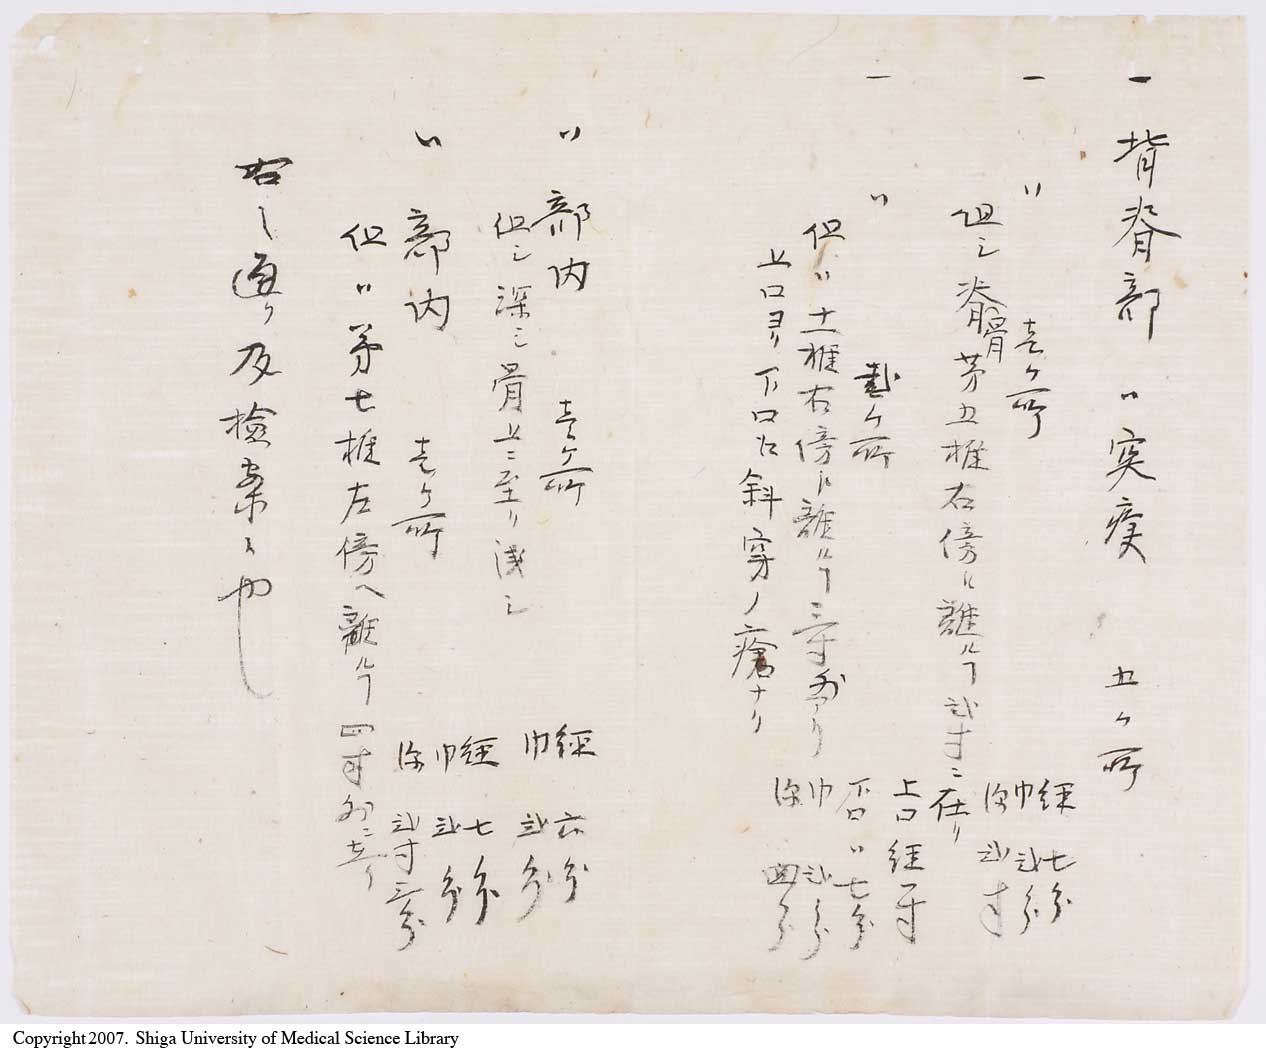 一 背脊部〃突痍 五ケ所
一 〃 壱ケ所
経 七分
巾 弐分
深 弐寸
但シ脊骨第五椎右傍ヘ離ルヿ弐寸ニ在リ
一 〃 弐ケ所
上口経一寸
下口〃七分
巾 弐分
深 四分
但〃十一椎右傍ヘ離ルヿ三寸
上口ヨリ下口ヘ斜穿ノ瘡ナリ
〃部内 壱ケ所
経 六分
巾 弐分
但シ深シ骨上ニ至リ浅シ
〃部内 壱ケ所
経 七分
巾 弐分
深 弐寸三分
但〃第七椎左傍ヘ離ルヿ四寸
右之通リ及檢案候也
Copyright 2007. Shiga University of Medical Science Library